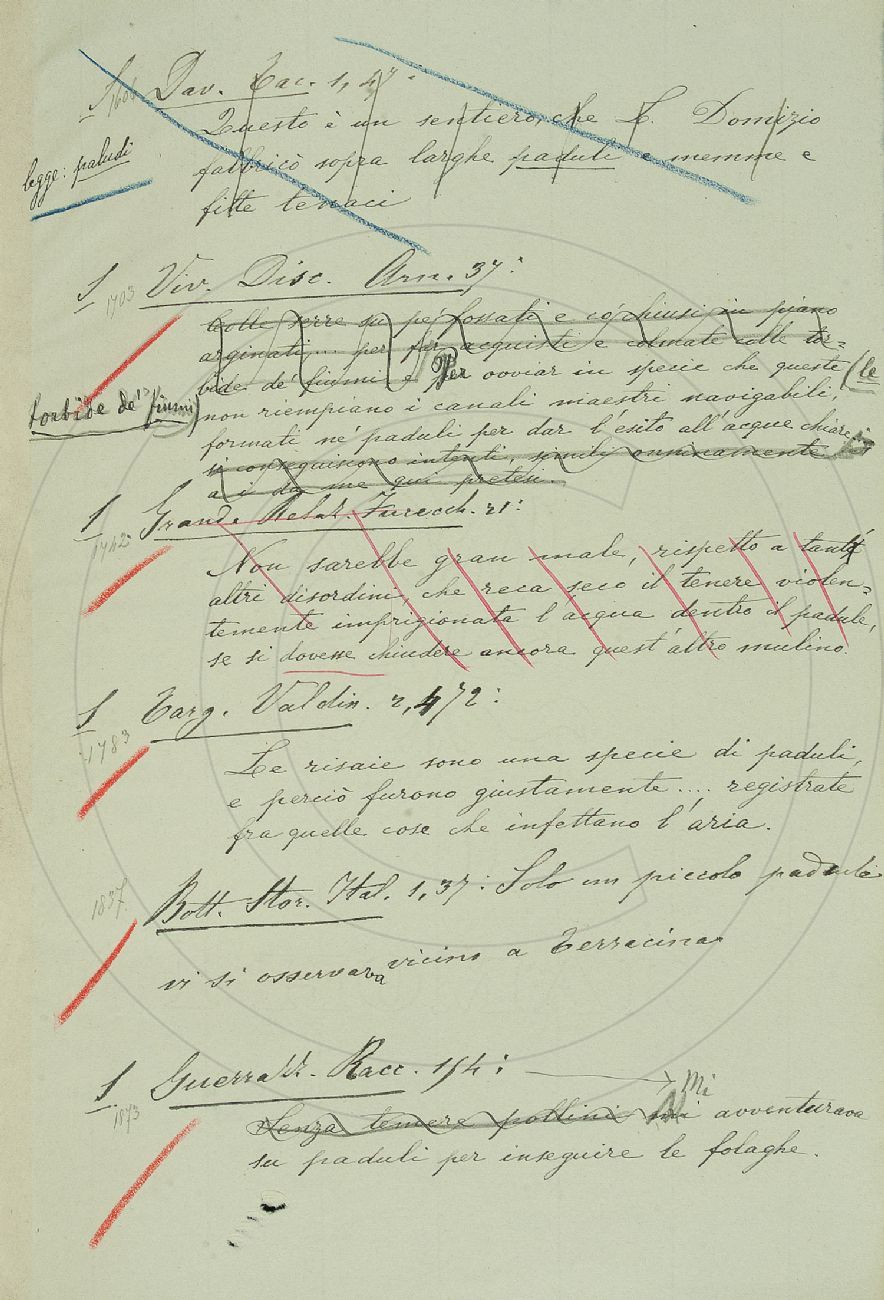 S 1606 Dav. Tac. 1, 47:
Questo è un sentiero, che L. Domizio
legge: paludi
fabbricò sopra larghe paduli e memme e
fitte tenaci
S 1703 Viv. Disc. Arn. 37:
Colle serre su pe' fossati e co' chiusi in piano
arginati,... per far acquisti e colmate colle tor-
bide de' fiumi e Per ovviar in specie che queste (le
torbide de' fiumi)
non riempiano i canali maestri navigabili,
formati ne' paduli per dar l'esito all'acque chiare;
si conseguiscono intenti, simili onninamente
a i da me qui pretesi.
S 1742 Grand. Relaz. Fucecch. 21:
Non sarebbe gran male, rispetto a tanti
altri disordini, che reca seco il tenere violen-
temente imprigionata l'acqua dentro il padule,
se si dovesse chiudere ancora quest'altro mulino.
S 1783 Targ. Valdin. 2, 472:
Le risaie sono una specie di paduli,
e perciò furono giustamente .... registrate
fra quelle cose che infettano l'aria.
1837. Bott. Stor. Ital. 1, 37: Solo un piccolo padule
vi si osservava vicino a Terracina
S 1873 Guerrazz. Racc. 154:
Mi
Senza temere pollini mi avventurava
su paduli per inseguire le folaghe.